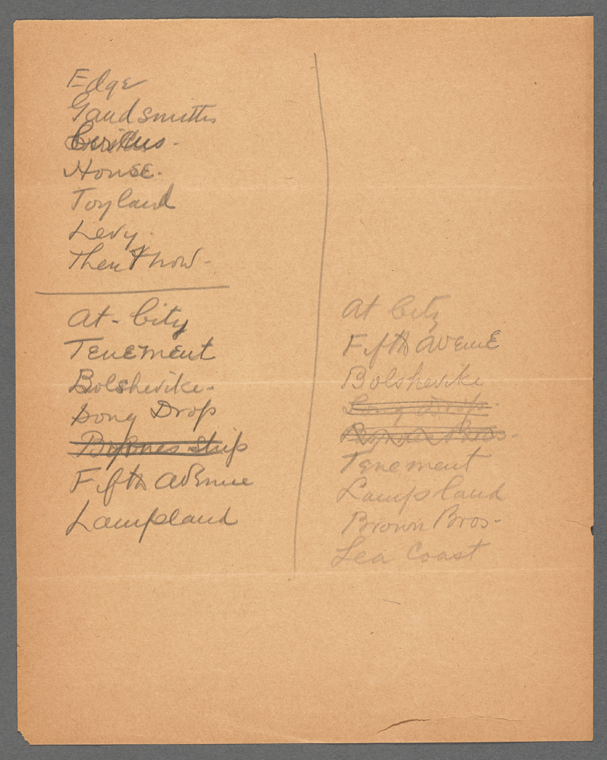 Edge
Gaudsmiths
House.
Toyland
Levy.
Then & now-
At-City
Tenement
Bolshevike-
Song Drop
Strip
Fifth Avenue
Lampland
At City
Fifth Avenue
Bolshevike
Song Drop
Bros-
Tenement
Lampland
Brown Bros-
Sea Coast